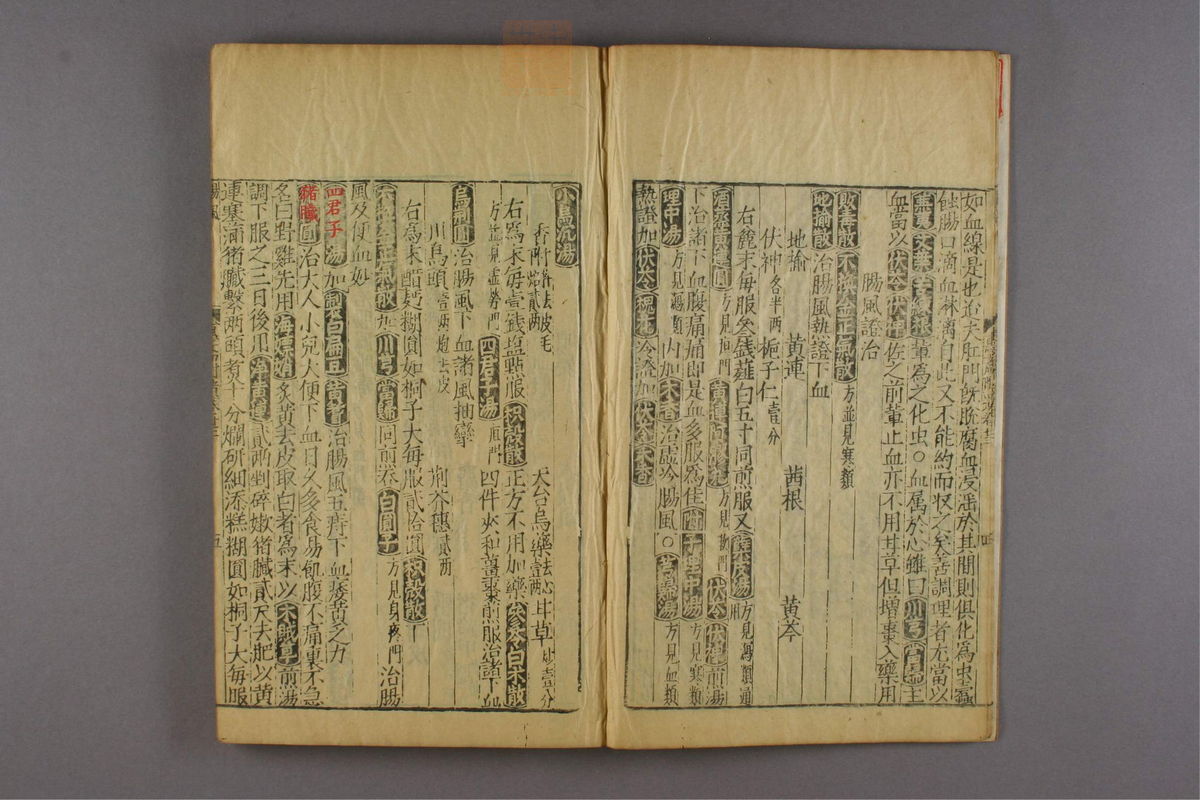 如血線是也迨夫肛門既脫腐血浸滛於其間則俱化為虫蠹
蝕腸口滴血淋漓自此又不能約而収之矣善調理者尤當以
艾葉苦練根輩為之化虫○血属於心雖曰川芎當歸主
血當以伏苓伏神佐之前輩止血亦不用甘草但增棗入藥用
腸風證治
敗毒散不換金正氣散方並見寒類
地榆散治腸風熱證下血
地榆 黃連 茜根 黃芩
伏神各半兩 梔子仁壹分
右麄末每服叄錢薤白五寸同煎服又方見瀉類通用
酒蒸黃連圓方見門黃
下治諸下血腹痛痛即是血多服為佳附子理中湯方見寒類
理中湯方見瀉類內加木香治虛冷腸風○芎歸湯方見血類
熱證加伏苓槐花冷證加伏苓木香
小烏沉湯
香附去皮毛貳兩 天台烏藥去心壹兩 甘草炒壹分
右為末每壹錢塩點服枳殼散正方不用加藥參苓白朮散
方並見虛勞門四君子湯四件夾和薑棗煎服治諸下血
烏荊圓治腸風下血諸風抽攣
川烏頭壹兩炮去皮 荊芥穗貳兩
右為末醋麪糊圓如桐子大每服貳拾圓枳殼散下
正氣散加川芎當歸同煎吞白圓子方見身疼門治腸
風及便血妙
四君子湯加製白扁豆黃耆治腸風五痔下血痿黃乏力
猪臟圓治大人小兒大便下血日久多食易飢腹不痛裏不急
名曰對雞先用海螵蛸炙黃去皮取白者為末以木賊草煎湯
調下服之三日後用淨黃連貳兩剉碎嫩猪臟貳尺去肥以黃
連塞滿猪臟繫兩頭煮十分爛研細添糕糊圓如桐子大每服